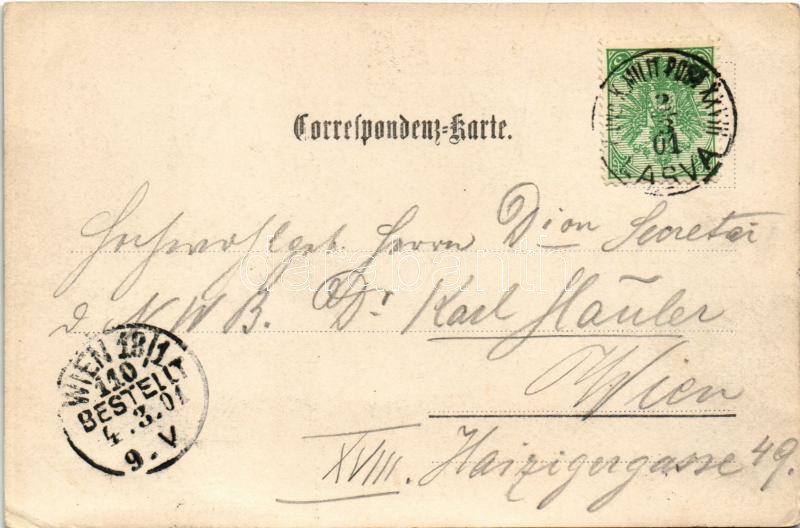 K. u. K. MILIT. POST XXVIII
2 3
01
LAŠVA
Correspondenz-Karte.
Hochwohlgeb. Herrn Dion Secretär
d N W B. Dr Karl Häuler
Wien
XVIII. Haizingergasse 49.
WIEN 18/1
110
BESTELLT
4.3.01
9.V
darabanth